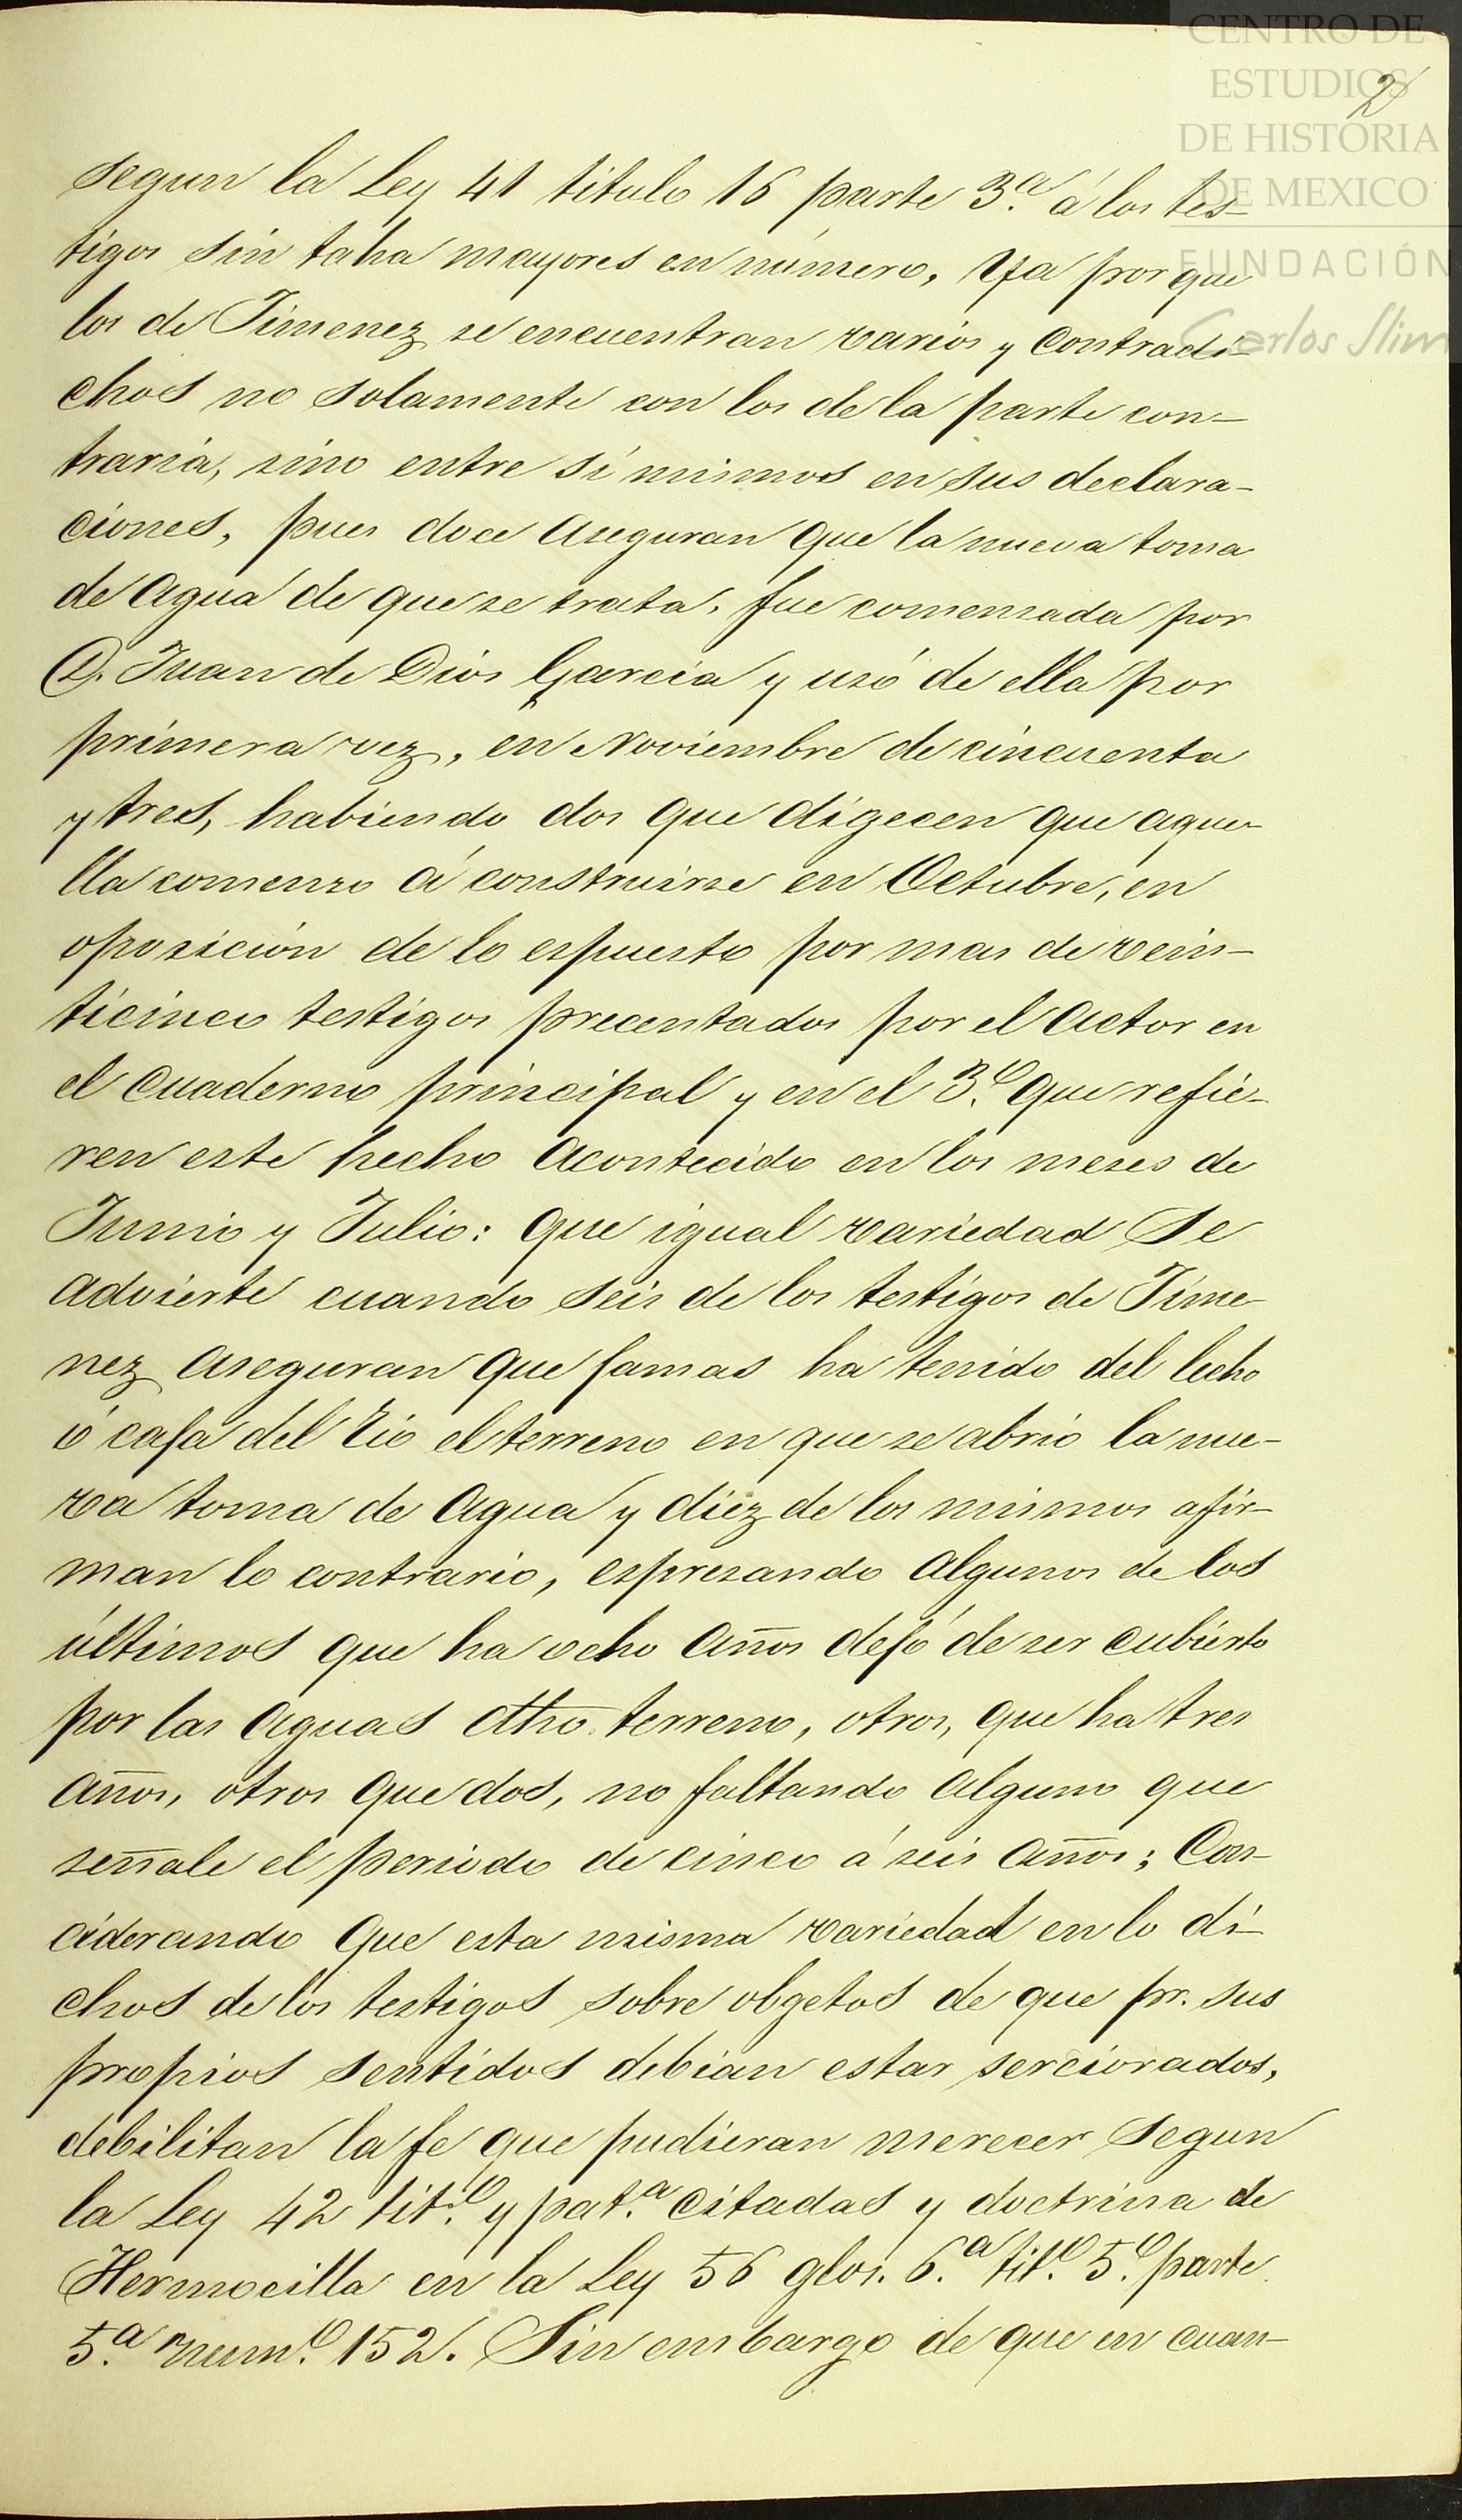 CENTRO DE
ESTUDIOS
DE HISTORIA
DE MEXICO
FUNDACIÓN
Carlos Slim
2
segun la Ley 41 titulo 16 parte 3.ª á los tes-
tigos sin taha mayores en número, Ya por que
los de Jimenez se encuentran varios y contradi-
chos no solamente con los de la parte con-
traria, sino entre sí mismos en sus declara-
ciones, pues doce aseguran que la nueva toma
de agua de que se trata, fue comensada por
D. Juan de Dios García y usó de ella por
primera vez, en Noviembre de cincuenta
y tres, habiendo dos que digecen que aque-
lla comenzo á construirse en Octubre, en
oposición de lo espuesto por mas de vein-
ticinco testigos precentados por el actor en
el cuaderno principal y en el 3.º que refie-
ren este hecho acontecido en los meses de
Junio y Julio: que igual variedad se
advierte cuando seis de los testigos de Jime-
nez aseguran que jamas ha tenido del lecho
ó caja del Rio el terreno en que se abrio la nue-
va toma de agua y diez de los mismos afir-
man lo contrario, espresando algunos de los
últimos que ha ocho años dejó de ser cubierto
por las aguas dho. terreno, otros, que ha tres
años, otros que dos, no faltando alguno que
señale el periodo de cinco á seis años; Con-
ciderando que esta misma variedad en lo di-
chos de los testigos sobre obgetos de que pr. sus
propios sentidos debian estar serciorados,
debilitan la fe que pudieran merecer segun
la Ley 42 tit.º y pat.ª citadas y doctrina de
Hermocilla en la Ley 56 glos. 6.ª tit.º 5.º parte
5.ª num.º 152. Sin embargo de que en cuan-